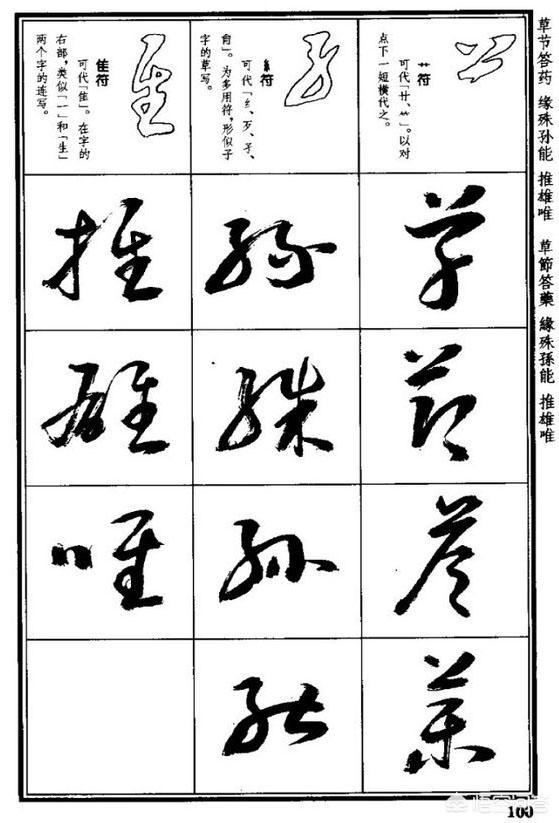 草节答药 缘殊孙能 推雄唯 草節答藥 緣殊孫能 推雄唯
艹符
可代「艹、⺮」。以对
点下一短横代之。
草
节
答
药
纟符
可代「纟、歹、孑、
㠯」。为多用符,形似子
字的草写。
缘
殊
孙
能
隹符
可代「隹」。在字的
右部,类似「一」和「生」
两个字的连写。
推
雄
唯
100